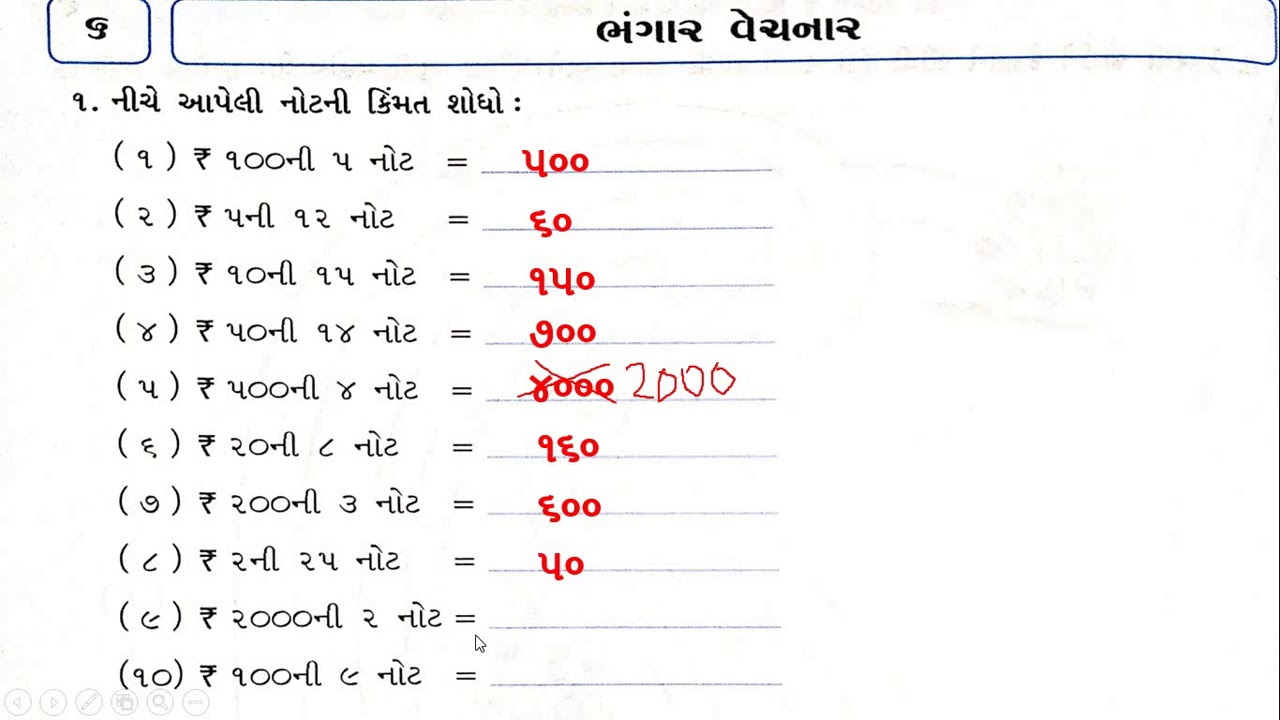 ૬ ભંગાર વેચનાર
૧. નીચે આપેલી નોટની કિંમત શોધો :
( ૧ ) ₹ ૧૦૦ની ૫ નોટ = ૫૦૦
( ૨ ) ₹ ૫ની ૧૨ નોટ = ૬૦
( ૩ ) ₹ ૧૦ની ૧૫ નોટ = ૧૫૦
( ૪ ) ₹ ૫૦ની ૧૪ નોટ = ૭૦૦
( ૫ ) ₹ ૫૦૦ની ૪ નોટ = ૪૦૦૦ 2000
( ૬ ) ₹ ૨૦ની ૮ નોટ = ૧૬૦
( ૭ ) ₹ ૨૦૦ની ૩ નોટ = ૬૦૦
( ૮ ) ₹ ૨ની ૨૫ નોટ = ૫૦
( ૯ ) ₹ ૨૦૦૦ની ૨ નોટ =
(૧૦) ₹ ૧૦૦ની ૯ નોટ =